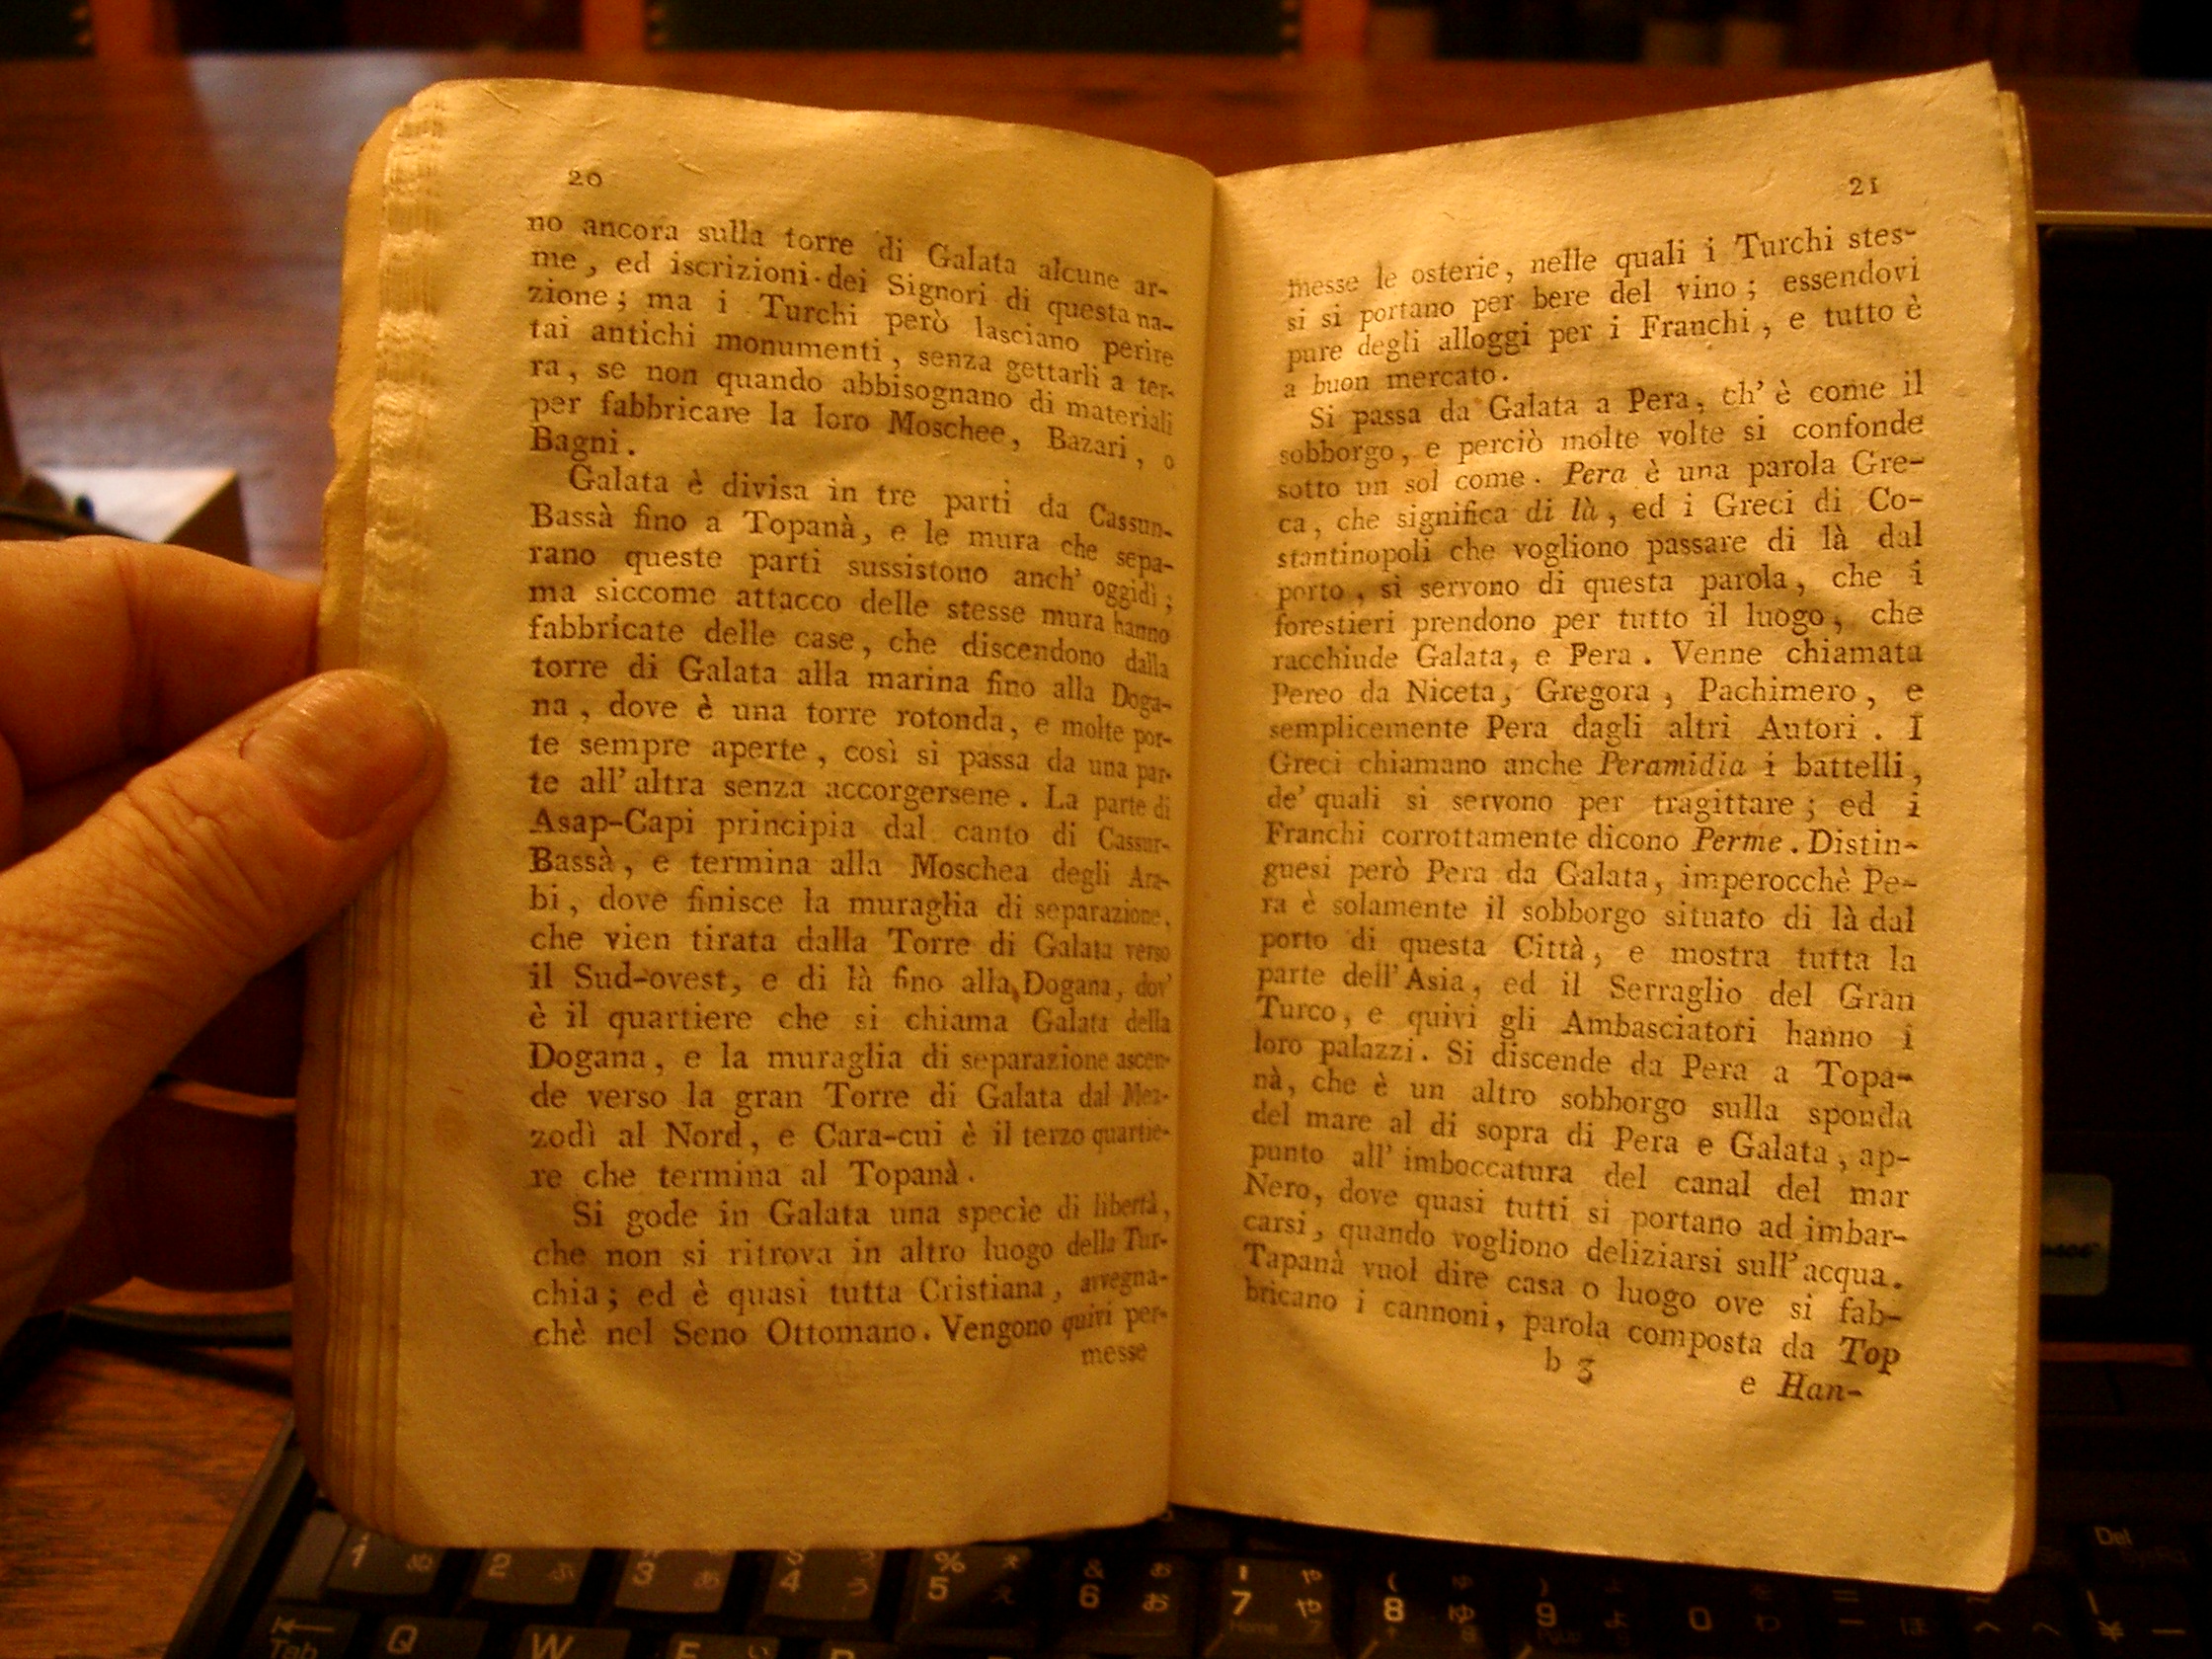 20
no ancora sulla torre di Galata alcune ar-
me, ed iscrizioni dei Signori di questa na-
zione; ma i Turchi però lasciano perire
tai antichi monumenti, senza gettarli a ter-
ra, se non quando abbisognano di materiali
per fabbricare la loro Moschee, Bazari, o
Bagni.
Galata è divisa in tre parti da Cassun-
Bassà fino a Topanà, e le mura che sepa-
rano queste parti sussistono anch' oggidì;
ma siccome attacco delle stesse mura hanno
fabbricate delle case, che discendono dalla
torre di Galata alla marina fino alla Doga-
na, dove è una torre rotonda, e molte por-
te sempre aperte, così si passa da una par-
te all' altra senza accorgersene. La parte di
Asap-Capi principia dal canto di Cassur-
Bassà, e termina alla Moschea degli Ara-
bi, dove finisce la muraglia di separazione,
che vien tirata dalla Torre di Galata verso
il Sud-ovest, e di là fino alla Dogana, dov'
è il quartiere che si chiama Galata della
Dogana, e la muraglia di separazione ascen-
de verso la gran Torre di Galata dal Mez-
zodì al Nord, e Cara-cui è il terzo quartie-
re che termina al Topanà.
Si gode in Galata una specìe di libertà,
che non si ritrova in altro luogo della Tur-
chia; ed è quasi tutta Cristiana, avvegna-
chè nel Seno Ottomano. Vengono quivi per-
messe
21
messe le osterie, nelle quali i Turchi stes-
si si portano per bere del vino; essendovi
pure degli alloggi per i Franchi, e tutto è
a buon mercato.
Si passa da Galata a Pera, ch' è come il
sobborgo, e perciò molte volte si confonde
sotto un sol come. Pera è una parola Gre-
ca, che significa di là, ed i Greci di Co-
stantinopoli che vogliono passare di là dal
porto, si servono di questa parola, che i
forestieri prendono per tutto il luogo, che
racchiude Galata, e Pera. Venne chiamata
Pereo da Niceta, Gregora, Pachimero, e
semplicemente Pera dagli altri Autori. I
Greci chiamano anche Peramidia i battelli,
de' quali si servono per tragittare; ed i
Franchi corrottamente dicono Perme. Distin-
guesi però Pera da Galata, imperocchè Pe-
ra è solamente il sobborgo situato di là dal
porto di questa Città, e mostra tutta la
parte dell' Asia, ed il Serraglio del Gran
Turco, e quivi gli Ambasciatori hanno i
loro palazzi. Si discende da Pera a Topa-
nà, che è un altro sobborgo sulla sponda
del mare al di sopra di Pera e Galata, ap-
punto all' imboccatura del canal del mar
Nero, dove quasi tutti si portano ad imbar-
carsi, quando vogliono deliziarsi sull' acqua.
Tapanà vuol dire casa o luogo ove si fab-
bricano i cannoni, parola composta da Top
b 3
e Han-
1 ぬ 2 ふ 3 あ 4 う % 5 え & 6 お 7 や Home ( 8 ゆ ) 9 よ 0 わ ほ Del
Tab Q W E い R